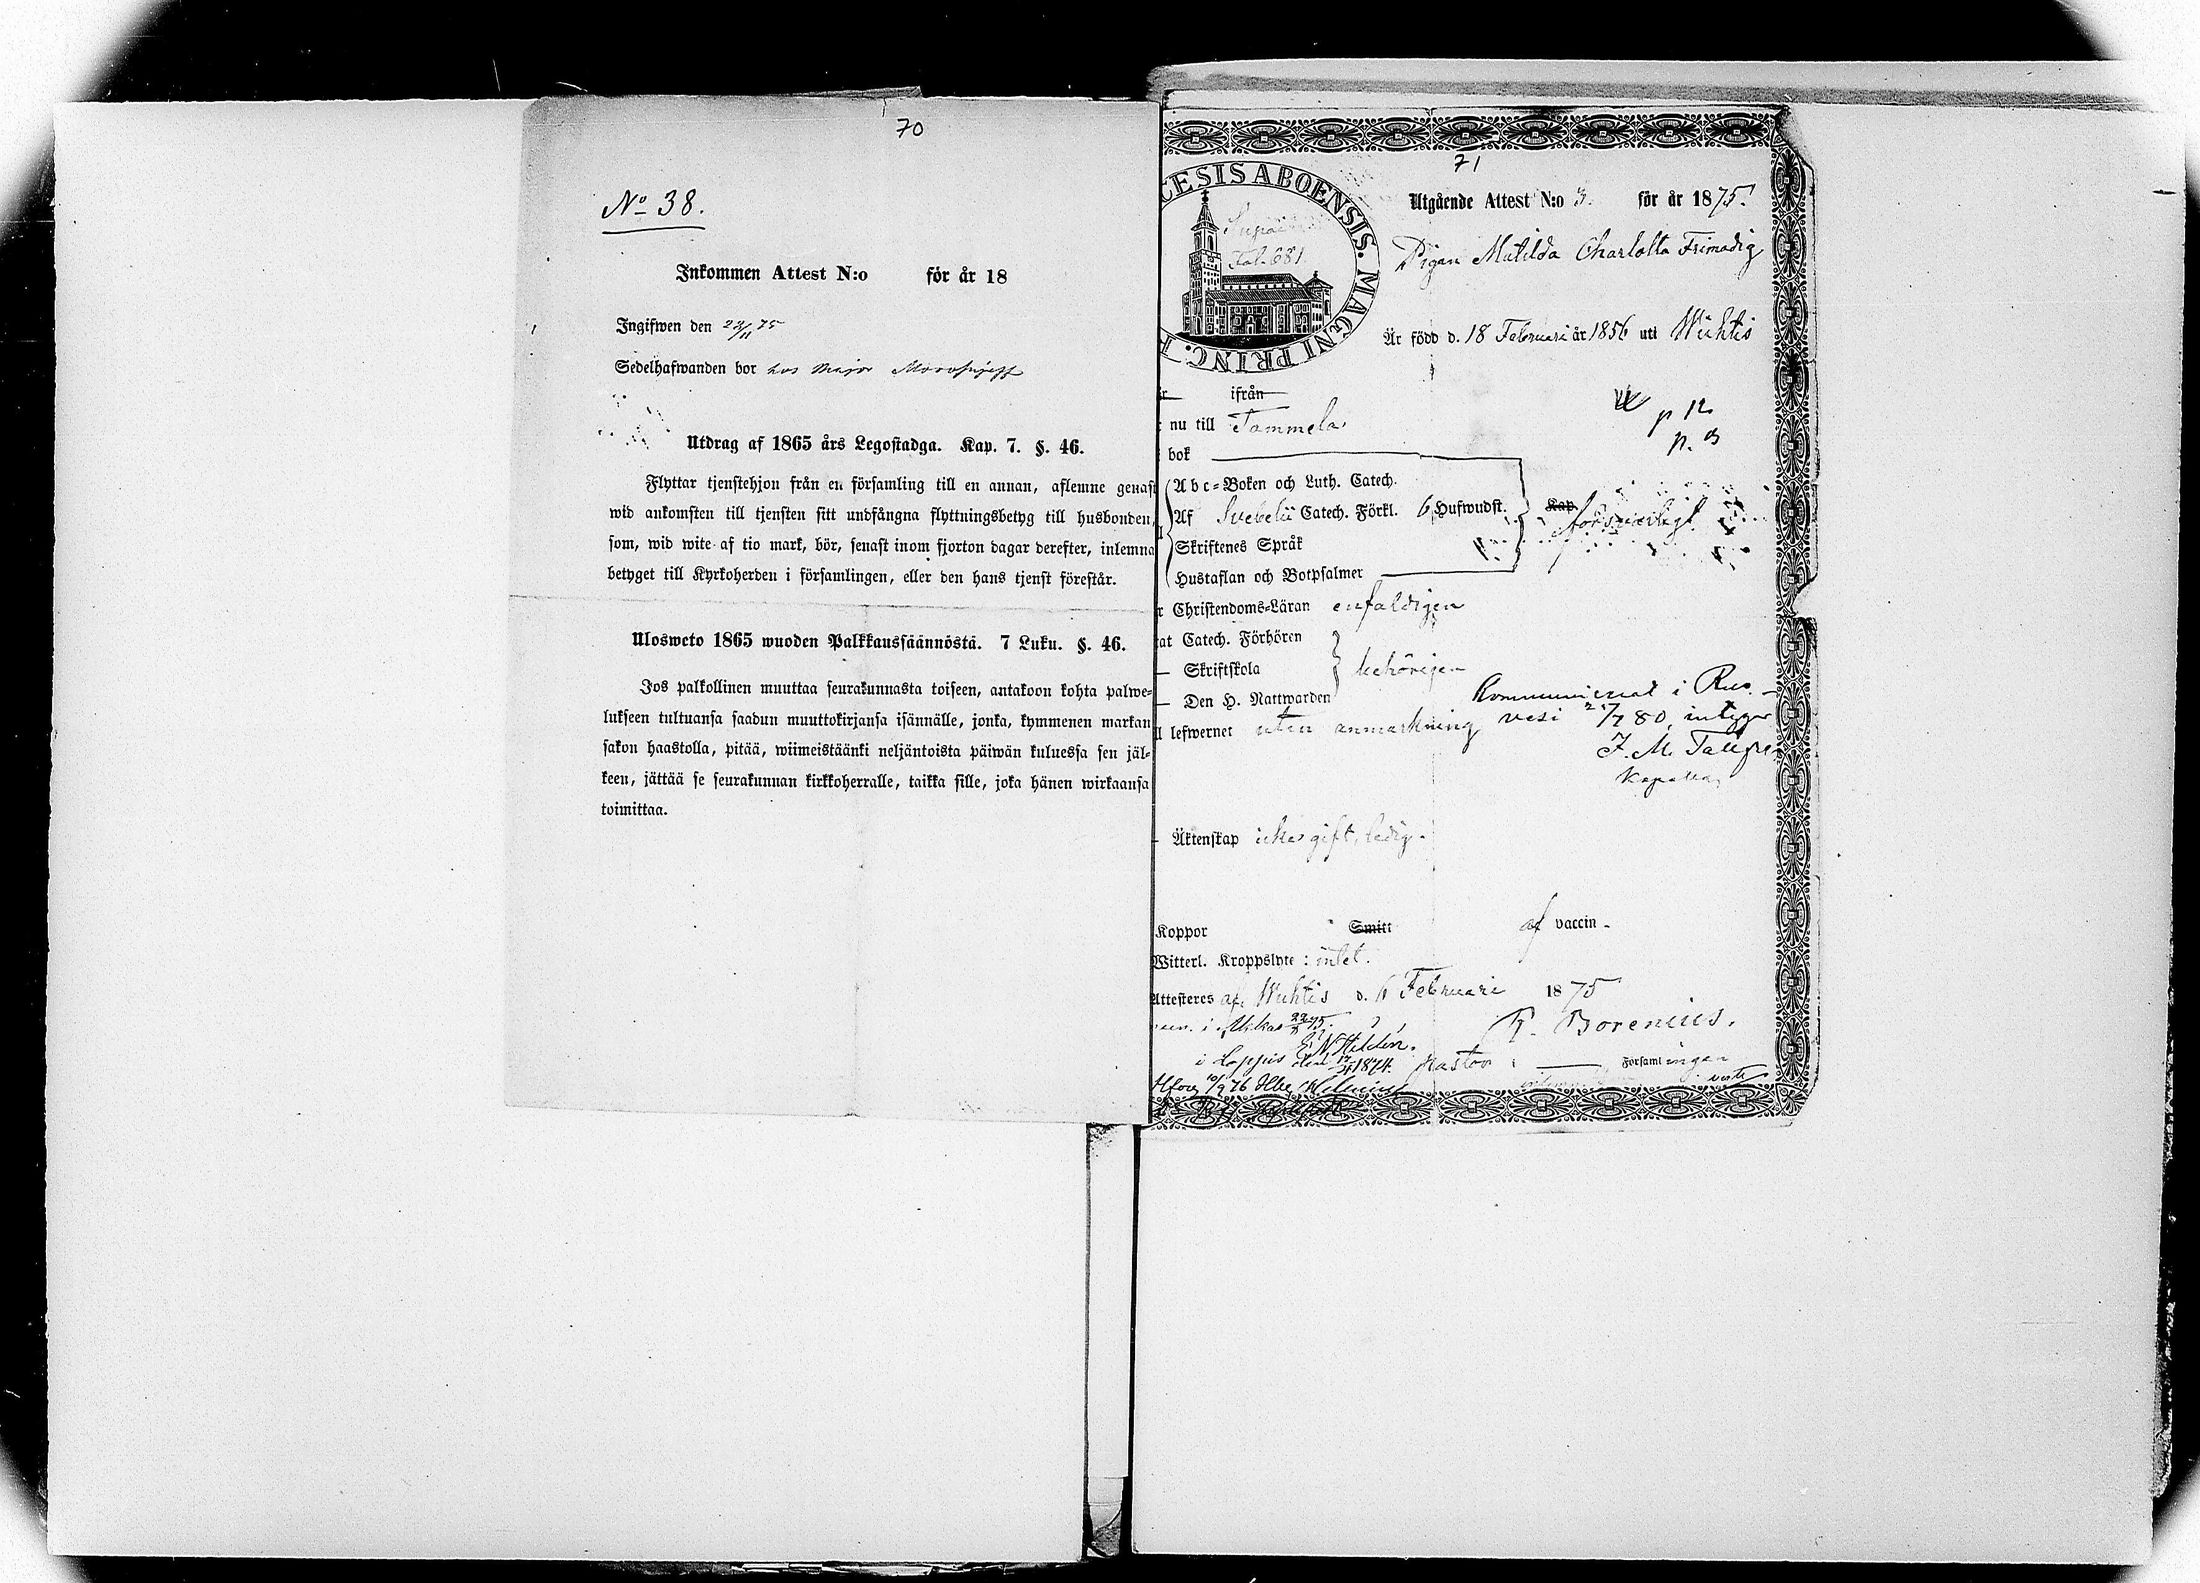 70
No 38.
Inkommen Attest N:o för år 18
Ingifwen den 22/11 75
Sedelhafwanden bor hos Major
Utdrag af 1865 års Legostadga. Kap. 7. §. 46.
Flyttar tjenstehjon från en församling till en annan, aflemne genast
wid ankomsten till tjensten sitt undfångna flyttningsbetyg till husbonden,
som, wid wite af tio mark, bör, senast inom fjorton dagar derefter, inlemna
betyget till Kyrkoherden i församlingen, eller den hans tjenst förestår.
Ulosweto 1865 wuoden Palkkaussäännöstä. 7 Luku. §. 46.
Jos palkollinen muuttaa seurakunnasta toiseen, antakoon kohta palwe-
lukseen tultuansa saadun muuttokirjansa isännälle, jonka, kymmenen markan
sakon haastolla, pitää, wiimeistäänki neljäntoista päiwän kuluessa sen jäl-
keen, jättää se seurakunnan kirkkoherralle, taikka sille, joka hänen wirkaansa
toimittaa.
71
CESIS ABOENSIS. MAGNI PRINC.
Fol. 681.
Utgående Attest N:o 3. för år 1875.
Pigan Matilda Charlotta Frimodig
Är född d. 18 Februari år 1856 uti Wichtis
ifrån
nu till Tammela
p 12
p.
bok
Abc-Boken och Luth. Catech.
Af Svebelii Catech. Förkl. 6 Hufwudst. Kap. försvarligt
Skriftenes Språk
Hustaflan och Botpsalmer
Christendoms-Läran enfaldigen
at Catech. Förhören
— Skriftskola behörigen
— Den H. Nattwarden
Kommunicerat i Rus-
vesi 2/7 80, intygar
lefwernet utan anmärkning
J. M.
Kapellan
Äktenskap icke gift, ledig.
Koppor Smitt af vaccin.
Witterl. Kroppslyte: intet.
Attesteres af Wichtis d. 6 Februari 1875
R. Borenius.
i Loppis
pastor i — Församlingen